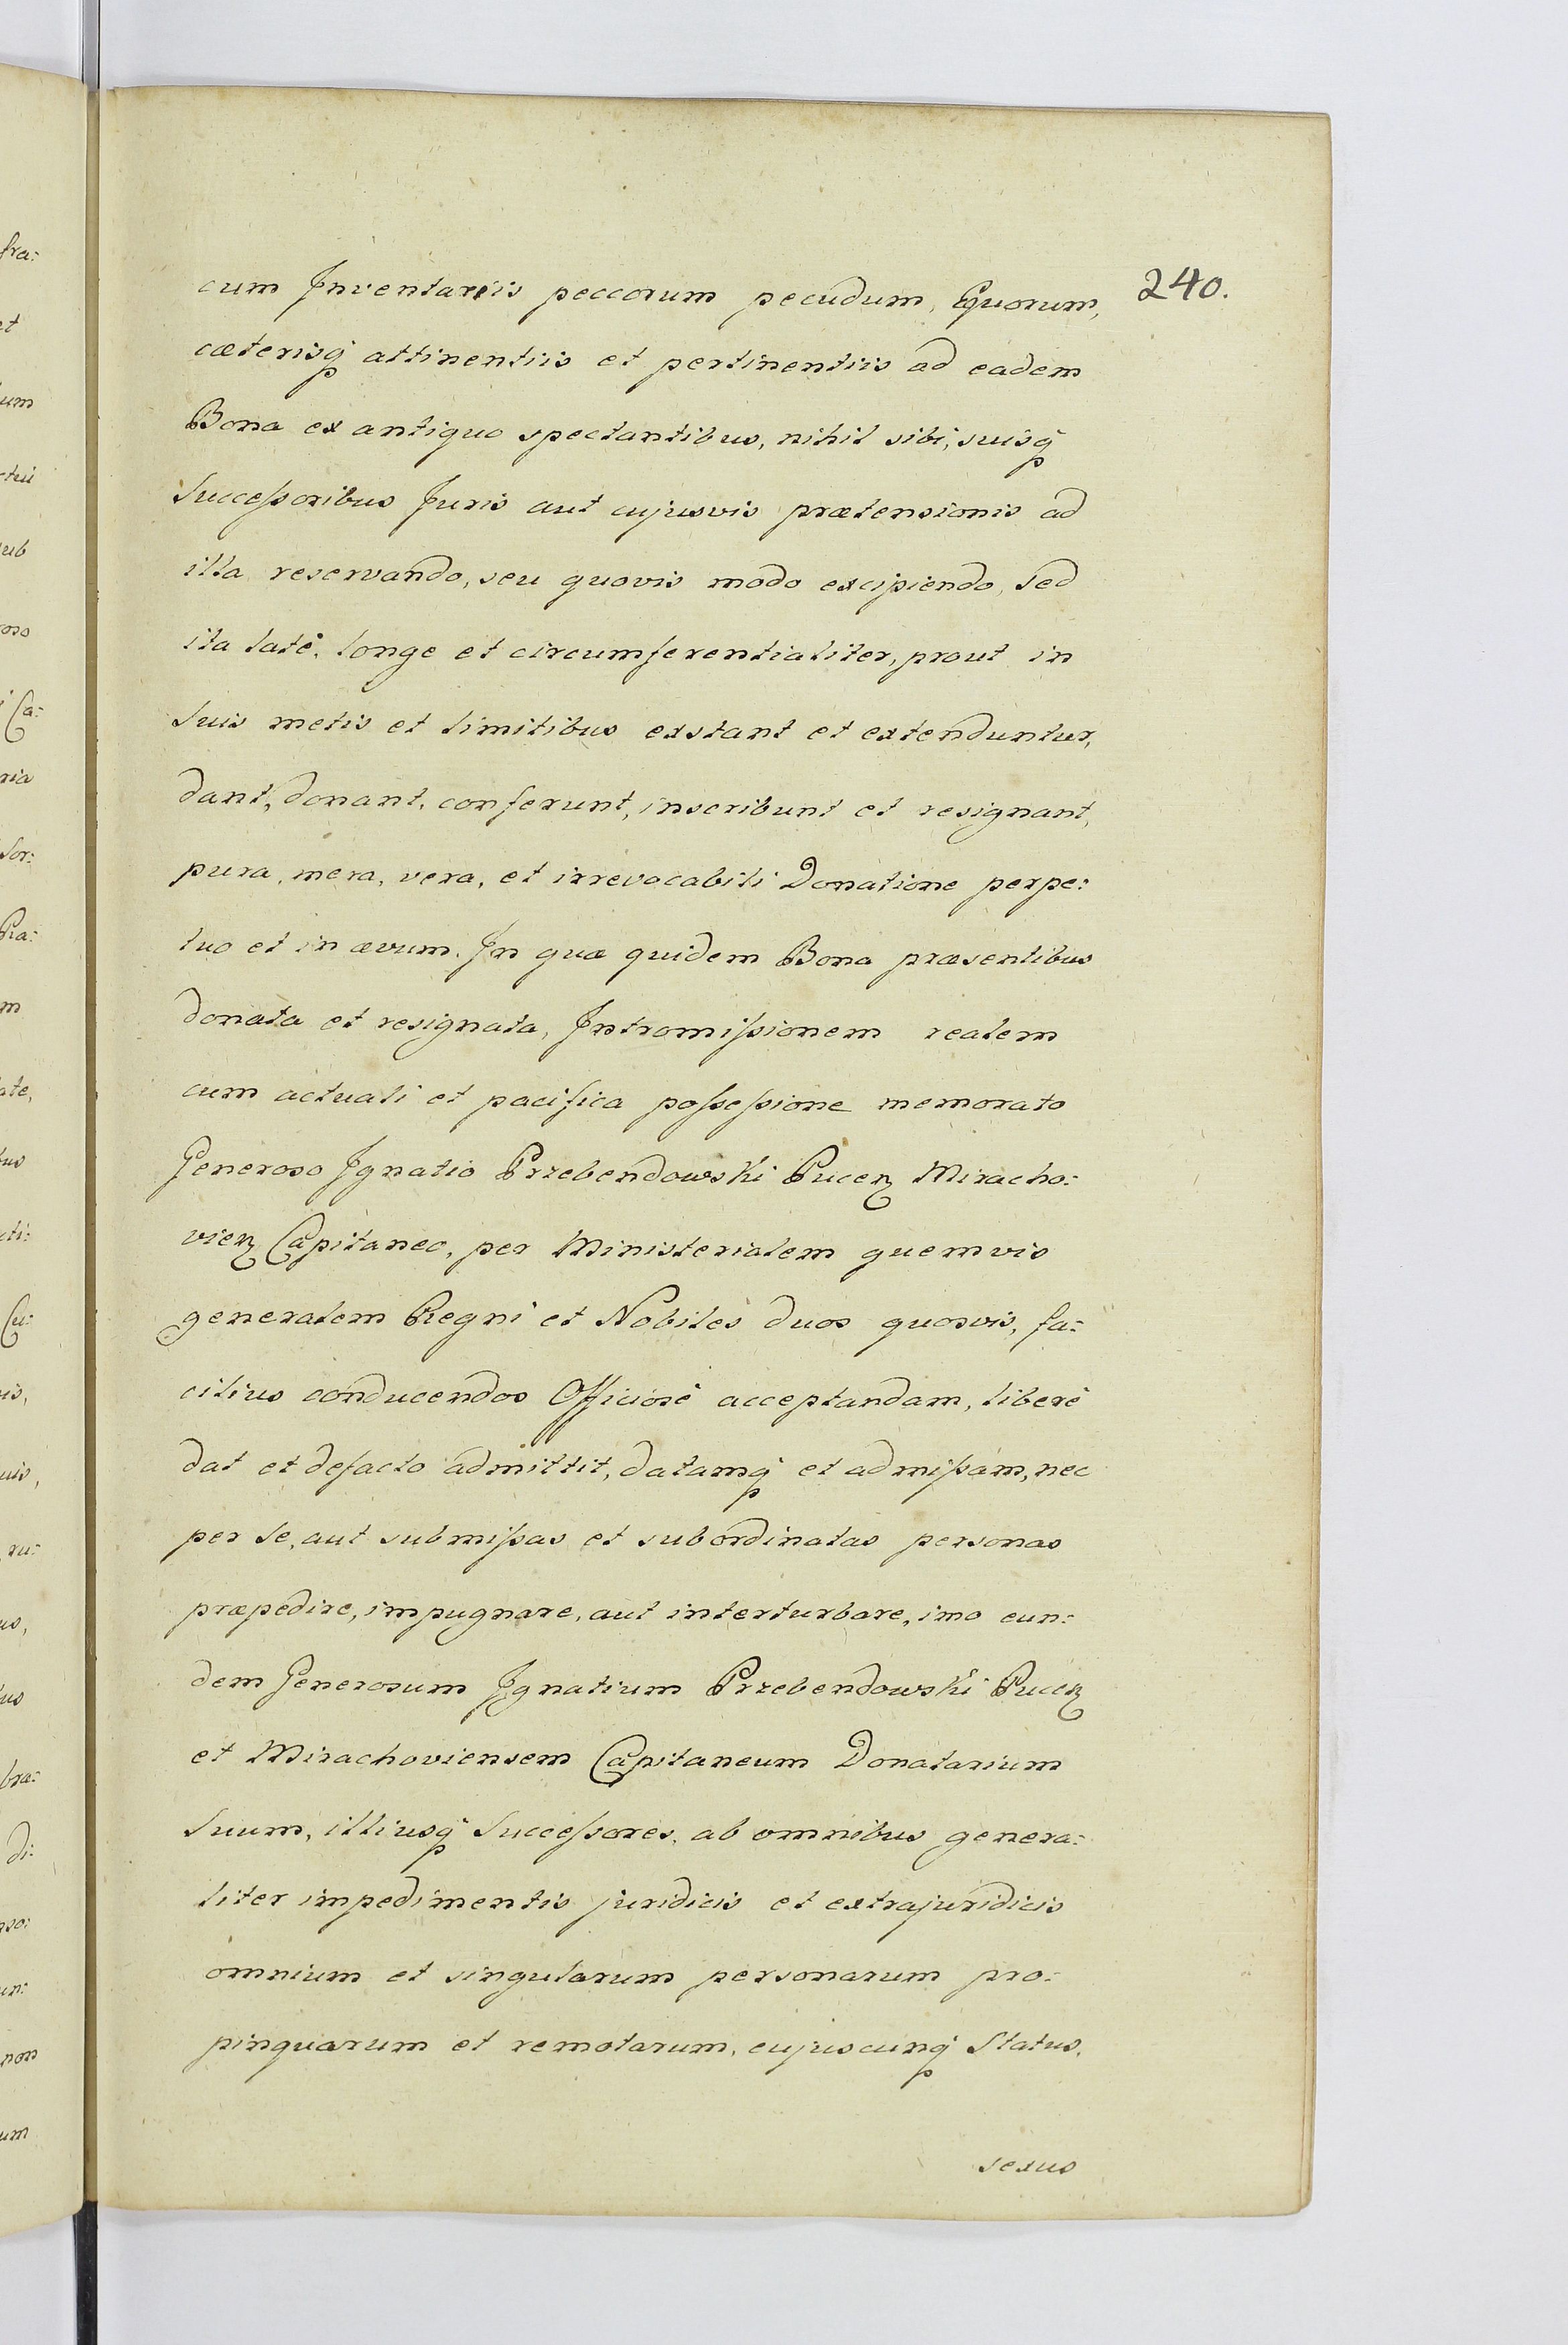 240.
cum Inventariis peccorum pecudum, Equorum,
cæterisq́ attinentiis et pertinentiis ad eadem
Bona ex antiquo spectantibus, nihil sibi, suisq́
Succeſsoribus Juris aut cujusvis prætensionis ad
illa reservando, seu quovis modo excipiendo, Sed
ita latè, longe et circumferentialiter, prout in
Suis metis et limitibus exstant et extenduntur,
dant, donant, conferunt, inscribunt et resignant,
pura, mera, vera, et irrevocabili Donatione perpe:
tuo et in ævum. In quæ quidem Bona præsentibus
donata et resignata, Intromiſsionem realem
cum actuali et pacifica poſseſsione memorato
Generoso Ignatio Przebendowski Pucen Miracho:
vien Capitaneo, per Ministerialem quemvis
generalem Regni et Nobiles duos quosvis, fa:
cilius conducendos Officiosè acceptandam, liberè
dat et defacto admittit, datamq́ et admiſsam, nec
per Se, aut submiſsas et subordinatas personas
præpedire, impugnare, aut interturbare, imo eun:
dem Generosum Ignatium Przebendowski Pucen
et Mirachoviensem Capitaneum Donatarium
Suum, illiusq́ Succeſsores, ab omnibus genera:
liter impedimentis juridicis et extrajuridicis
omnium et singularum personarum pro:
pinquarum et remotarum, cujuscunq́ Status,
sexus